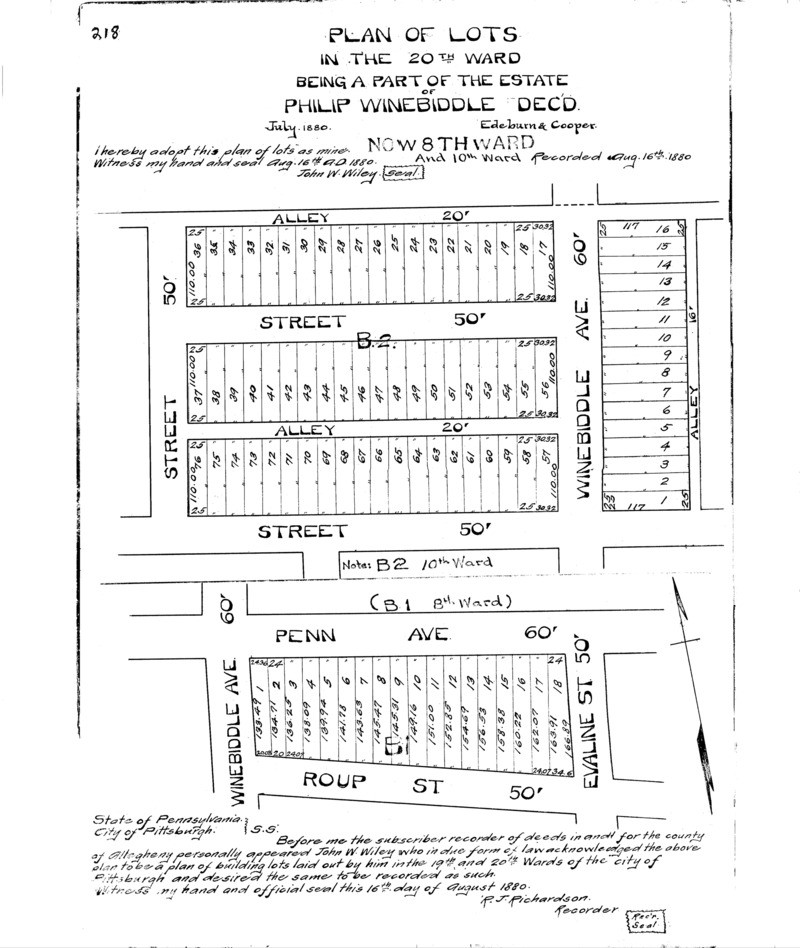 218
PLAN OF LOTS
IN THE 20TH WARD
BEING A PART OF THE ESTATE
OF
PHILIP WINEBIDDLE DEC'D.
July. 1880. Edeburn & Cooper.
NOW 8TH WARD
I hereby adopt this plan of lots as mine.
And 10th Ward Recorded Aug. 16th. 1880
Witness my hand and seal Aug. 16th A.D. 1880.
John W. Wiley. Seal
ALLEY 20'
25 25 30.32
36 35 34 33 32 31 30 29 28 27 26 25 24 23 22 21 20 19 18 17
110.00 110.00
25 25 30.32
50'
STREET 50'
B.2.
25 25 30.32
110.00 110.00
37 38 39 40 41 42 43 44 45 46 47 48 49 50 51 52 53 54 55 56
25 25 30.32
ALLEY 20'
25 25 30.32
76 75 74 73 72 71 70 69 68 67 66 65 64 63 62 61 60 59 58 57
110.00 110.00
25 25 30.32
STREET
STREET 50'
WINEBIDDLE AVE. 60'
25 117 16 25
15
14
13
12
11
10
9
8
7
6
5
4
3
2
25 117 1 25
25
ALLEY 16'
Note: B2 10th Ward
(B1 8th Ward)
60'
PENN AVE. 60'
WINEBIDDLE AVE.
EVALINE ST 50'
24.36 24 24
1 2 3 4 5 6 7 8 9 10 11 12 13 14 15 16 17 18
133.49 134.71 136.25 138.09 139.94 141.78 143.63 145.47 145.31 149.16 151.00 152.85 154.69 156.53 158.38 160.22 162.07 163.91 166.89
20 24.07 24.07 34.6
ROUP ST 50'
State of Pennsylvania.
City of Pittsburgh. } S.S.
Before me the subscriber recorder of deeds in and for the county
of Allegheny personally appeared John W. Wiley who in due form of law acknowledged the above
plan to be a plan of building lots laid out by him in the 19th and 20th Wards of the city of
Pittsburgh and desired the same to be recorded as such.
Witness my hand and official seal this 16th day of August 1880.
R. J. Richardson.
Recorder
Rec'r. Seal